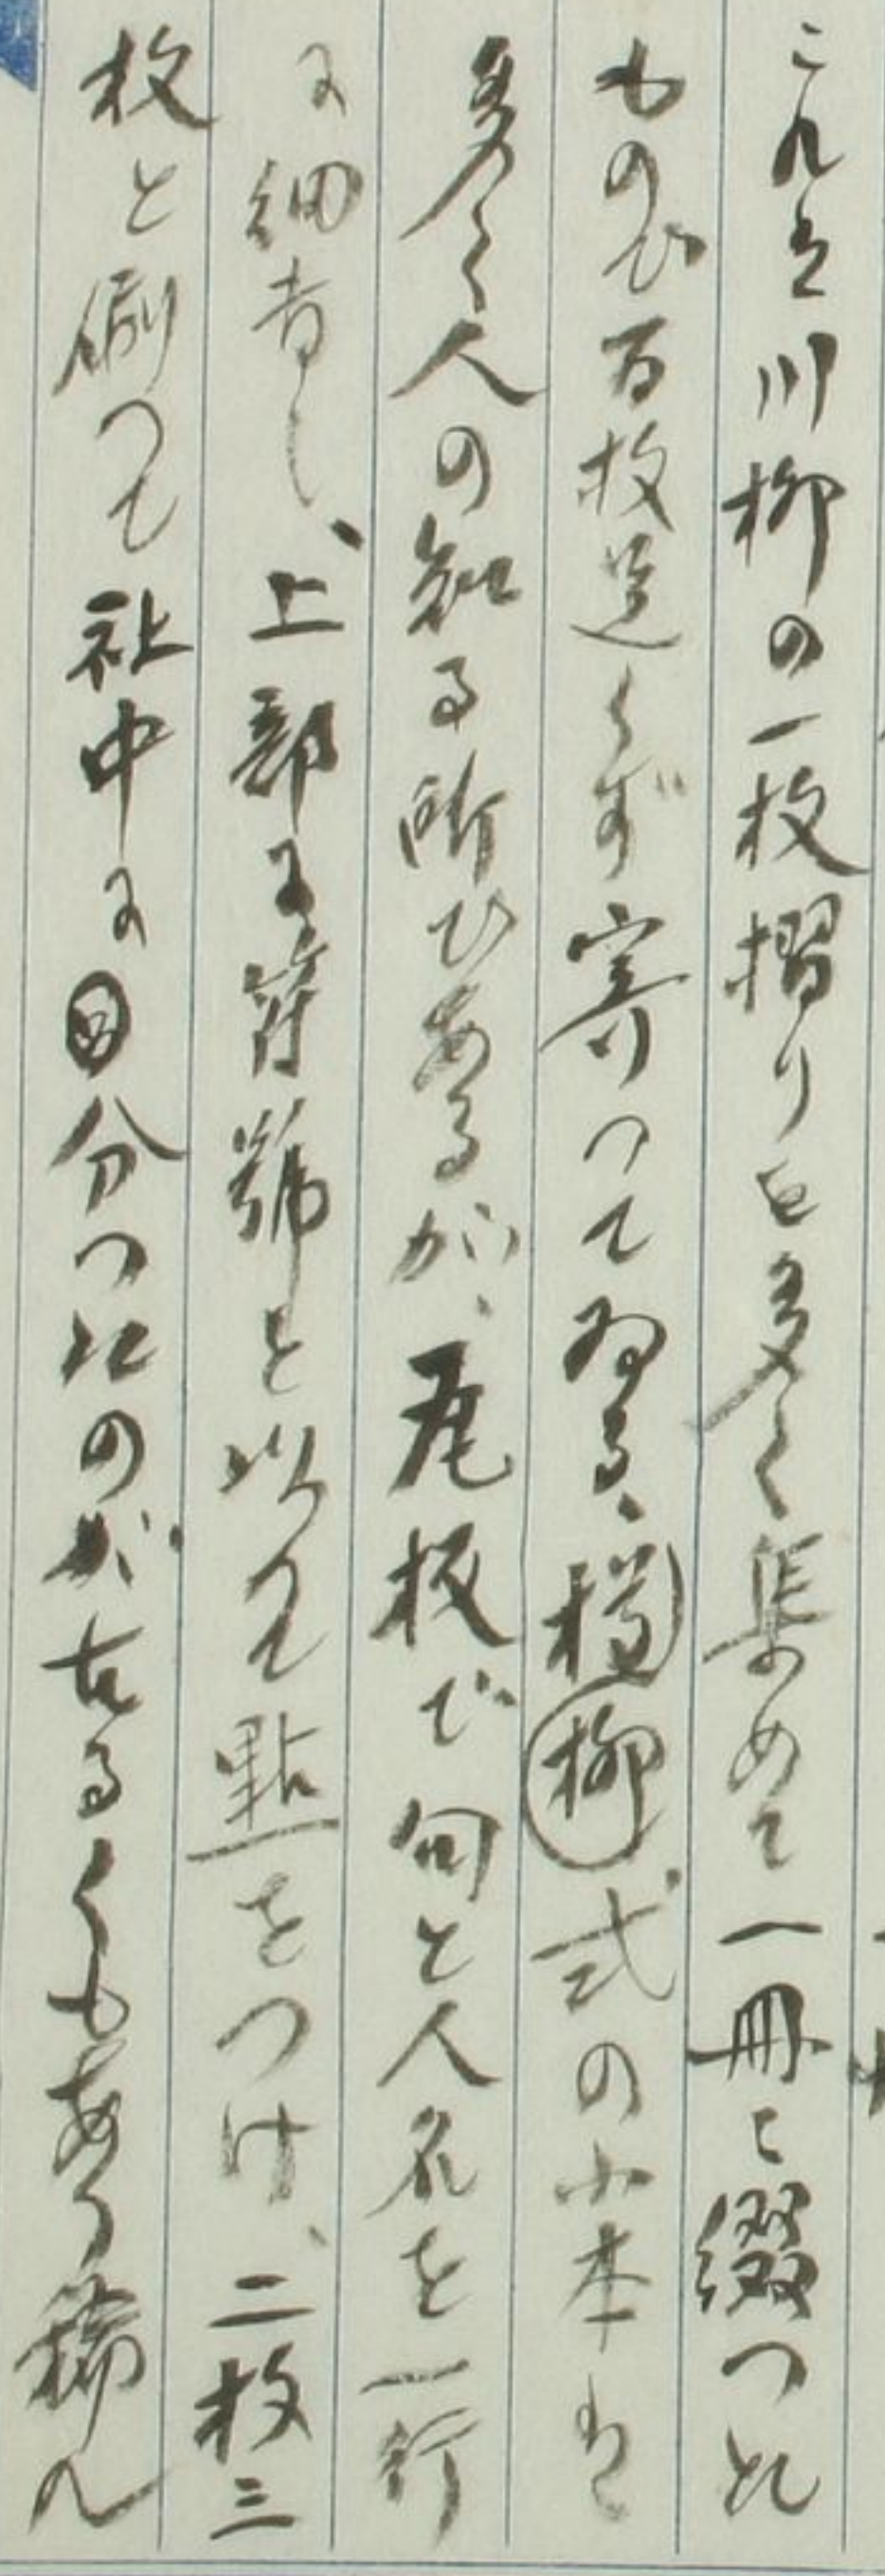 これは川柳の一枚摺りを多く集めて一冊に綴つた
もので百枚近くず寄つてゐる、樽柳式の小本は
多く人の知る所であるが、瓦板で句と人名を一行
に細書し、上部に符號を以て點をつけ、二枚三
枚と刷つて社中に分つたのが古るくもあり稀れ